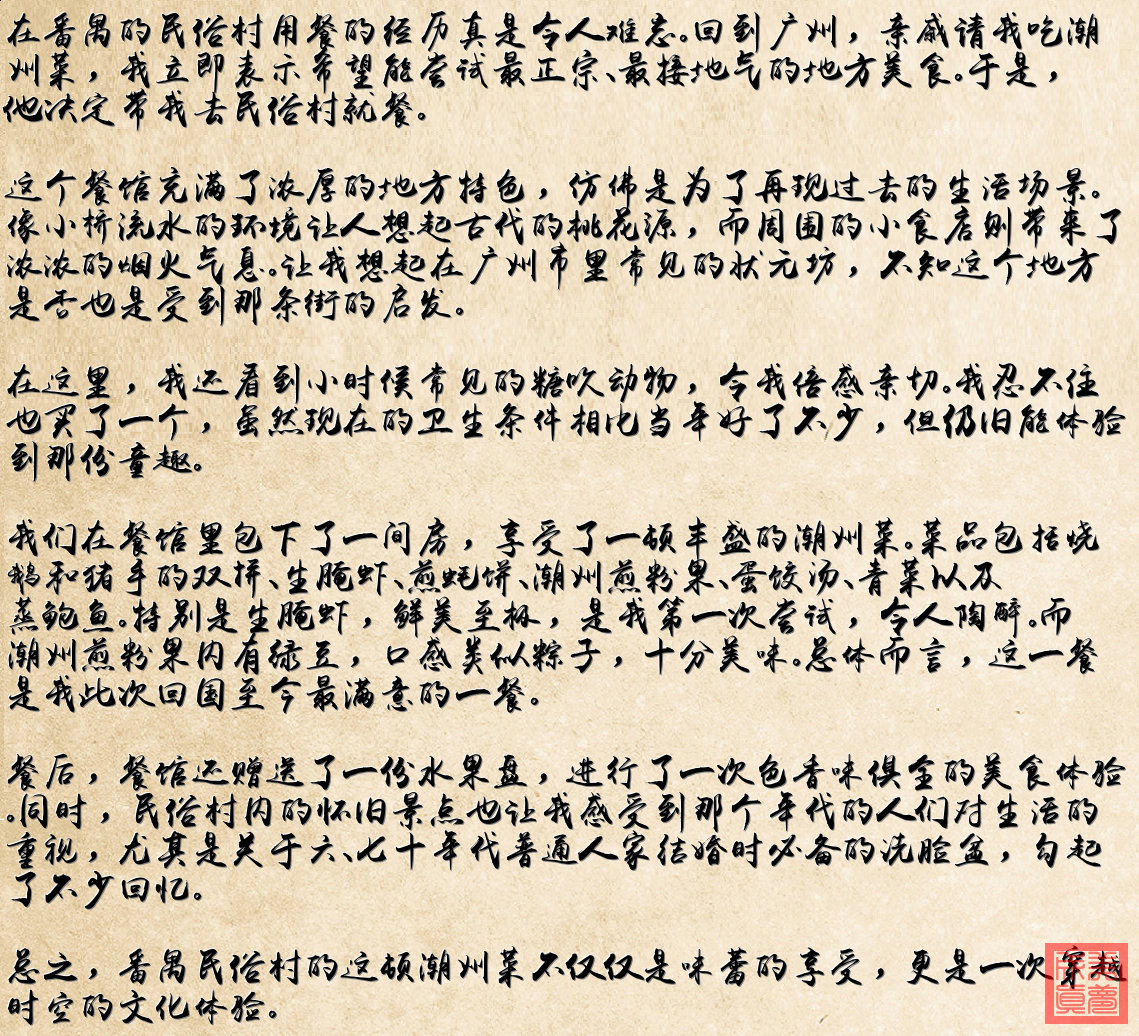 在番禺的民俗村用餐的经历真是令人难忘。回到广州，亲戚请我吃潮
州菜，我立即表示希望能尝试最正宗、最接地气的地方美食。于是，
他决定带我去民俗村就餐。
这个餐馆充满了浓厚的地方特色，仿佛是为了再现过去的生活场景。
像小桥流水的环境让人想起古代的桃花源，而周围的小食店则带来了
浓浓的烟火气息。让我想起在广州市里常见的状元坊，不知这个地方
是否也是受到那条街的启发。
在这里，我还看到小时候常见的糖吹动物，令我倍感亲切。我忍不住
也买了一个，虽然现在的卫生条件相比当年好了不少，但仍旧能体验
到那份童趣。
我们在餐馆里包下了一间房，享受了一顿丰盛的潮州菜。菜品包括烧
鹅和猪手的双拼、生腌虾、煎蚝饼、潮州煎粉果、蛋饺汤、青菜以及
蒸鲍鱼。特别是生腌虾，鲜美至极，是我第一次尝试，令人陶醉。而
潮州煎粉果内有绿豆，口感类似粽子，十分美味。总体而言，这一餐
是我此次回国至今最满意的一餐。
餐后，餐馆还赠送了一份水果盘，进行了一次色香味俱全的美食体验
。同时，民俗村内的怀旧景点也让我感受到那个年代的人们对生活的
重视，尤其是关于六、七十年代普通人家结婚时必备的洗脸盆，勾起
了不少回忆。
总之，番禺民俗村的这顿潮州菜不仅仅是味蕾的享受，更是一次穿越
时空的文化体验。